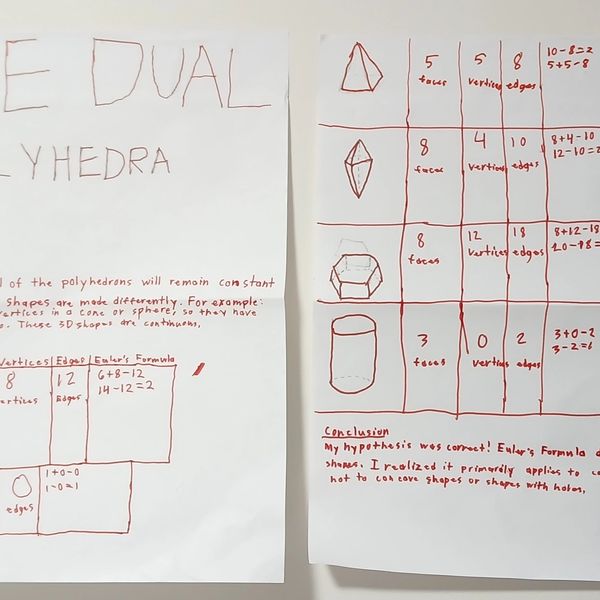 E DUAL
LYHEDRA
l of the polyhedrons will remain constant
shapes are made differently. For example:
vertices in a cone or sphere, so they have
o. These 3D shapes are continuous,
Vertices Edges Euler's Formula
8 12 6+8-12
ertices Edges 14-12=2
edges 1+0-0
1-0=1
5 5 8 10-8=2
faces vertices edges 5+5-8
8 4 10 8+4-10
faces vertices edges 12-10=2
8 12 18 8+12-18
faces vertices edges 20-18=
3 0 2 3+0-2
faces vertices edges 3-2=
Conclusion
My hypothesis was correct! Euler's Formula
shapes. I realized it primarily applies to co
not to concave shapes or shapes with holes.